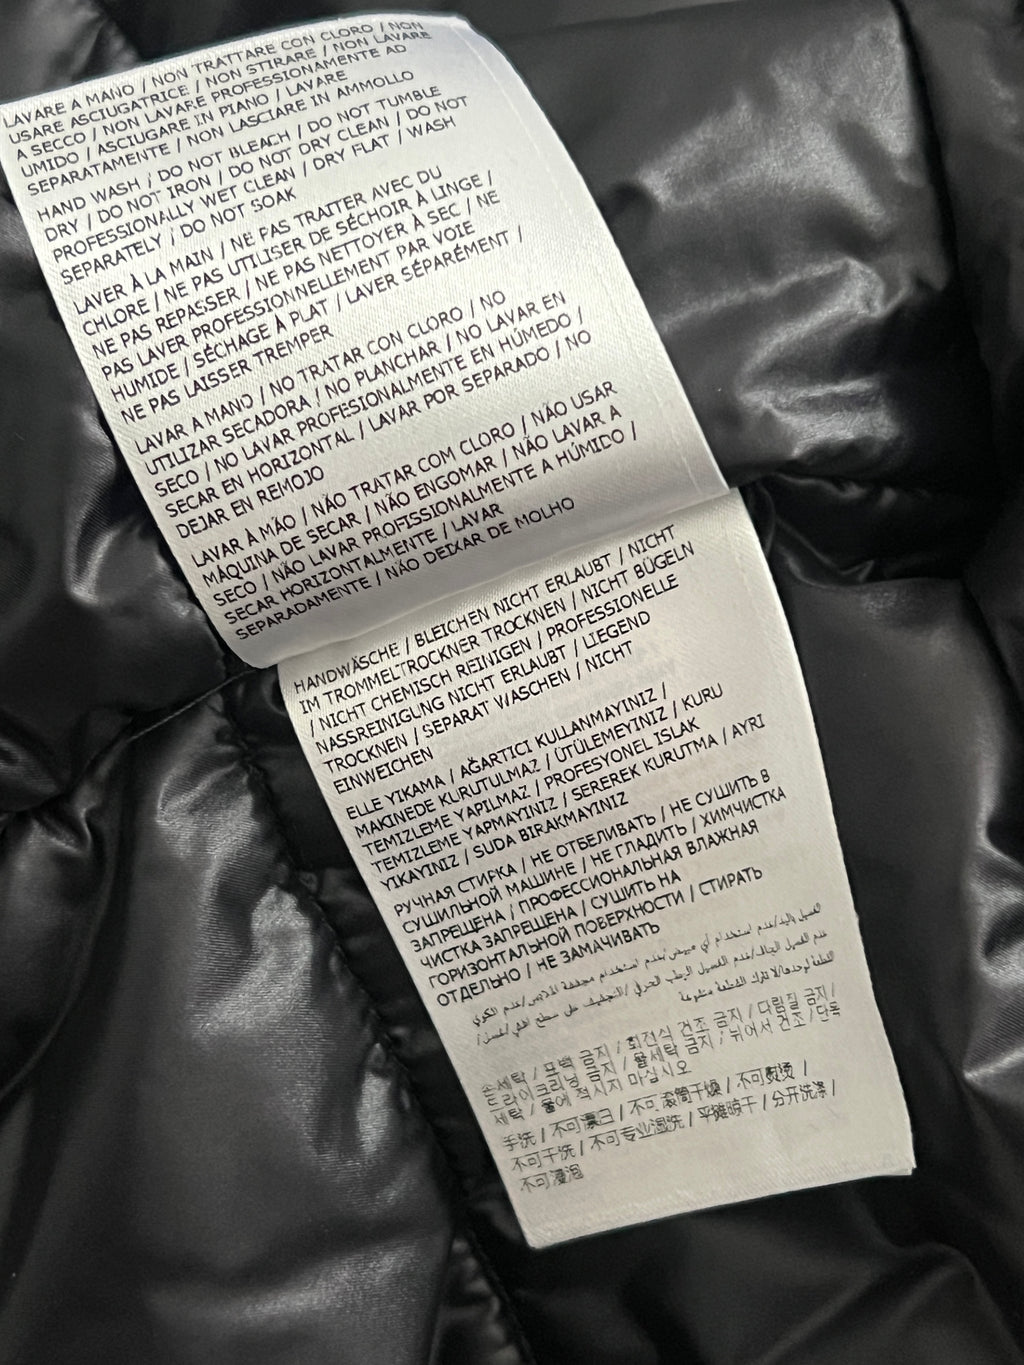 LAVARE A MANO / NON TRATTARE CON CLORO / NON
USARE ASCIUGATRICE / NON STIRARE / NON LAVARE
A SECCO / NON LAVARE PROFESSIONAMENTE AD
UMIDO / ASCIUGARE IN PIANO / LAVARE
SEPARATAMENTE / NON LASCIARE IN AMMOLLO
HAND WASH / DO NOT BLEACH / DO NOT TUMBLE
DRY / DO NOT IRON / DO NOT DRY CLEAN / DO NOT
PROFESSIONALLY WET CLEAN / DRY FLAT / WASH
SEPARATELY / DO NOT SOAK
LAVER À LA MAIN / NE PAS TRAITER AVEC DU
CHLORE / NE PAS UTILISER DE SÉCHOIR À LINGE /
NE PAS REPASSER / NE PAS NETTOYER À SEC / NE
PAS LAVER PROFESSIONNELLEMENT PAR VOIE
HUMIDE / SÉCHAGE À PLAT / LAVER SÉPARÉMENT /
NE PAS LAISSER TREMPER
LAVAR A MANO / NO TRATAR CON CLORO / NO
UTILIZAR SECADORA / NO PLANCHAR / NO LAVAR EN
SECO / NO LAVAR PROFESIONALMENTE EN HÚMEDO /
SECAR EN HORIZONTAL / LAVAR POR SEPARADO / NO
DEJAR EN REMOJO
LAVAR À MÃO / NÃO TRATAR COM CLORO / NÃO USAR
MÁQUINA DE SECAR / NÃO ENGOMAR / NÃO LAVAR A
SECO / NÃO LAVAR PROFISSIONALMENTE A HÚMIDO /
SECAR HORIZONTALMENTE / LAVAR
SEPARADAMENTE / NÃO DEIXAR DE MOLHO
HANDWÄSCHE / BLEICHEN NICHT ERLAUBT / NICHT
IM TROMMELTROCKNER TROCKNEN / NICHT BÜGELN
/ NICHT CHEMISCH REINIGEN / PROFESSIONELLE
NASSREINIGUNG NICHT ERLAUBT / LIEGEND
TROCKNEN / SEPARAT WASCHEN / NICHT
EINWEICHEN
ELLE YIKAMA / AĞARTICI KULLANMAYINIZ /
MAKINEDE KURUTULMAZ / ÜTÜLEMEYINIZ / KURU
TEMIZLEME YAPILMAZ / PROFESYONEL ISLAK
TEMIZLEME YAPMAYINIZ / SEREREK KURUTMA / AYRI
YIKAYINIZ / SUDA BIRAKMAYINIZ
РУЧНАЯ СТИРКА / НЕ ОТБЕЛИВАТЬ / НЕ СУШИТЬ В
СУШИЛЬНОЙ МАШИНЕ / НЕ ГЛАДИТЬ / ХИМЧИСТКА
ЗАПРЕЩЕНА / ПРОФЕССИОНАЛЬНАЯ ВЛАЖНАЯ
ЧИСТКА ЗАПРЕЩЕНА / СУШИТЬ НА
ГОРИЗОНТАЛЬНОЙ ПОВЕРХНОСТИ / СТИРАТЬ
ОТДЕЛЬНО / НЕ ЗАМАЧИВАТЬ
الغسيل باليد/عدم استخدام أي مبيض/عدم استخدام مجففة الملابس/عدم الكوي
عدم الغسيل الجاف/عدم الغسيل الرطب الحرفي/التجفيف على سطح أفقي/غسل/
القطعة لوحدها/لا تترك القطعة منقوعة
손세탁 / 표백 금지 / 회전식 건조 금지 / 다림질 금지 /
드라이크리닝 금지 / 물세탁 금지 / 뉘어서 건조 / 단독
세탁 / 물에 적시지 마십시오
手洗 / 不可漂白 / 不可滚筒干燥 / 不可熨烫 /
不可干洗 / 不可专业湿洗 / 平摊晾干 / 分开洗涤 /
不可浸泡